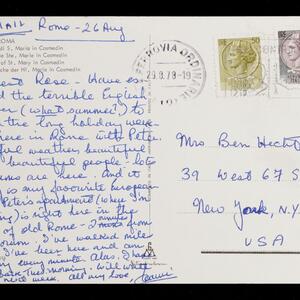 MAIL Rome - 26 Aug
ROMA
di S. Maria in Cosmedin
Ste. Maria in Cosmedin
of St. Mary in Cosmedin
che der Hl. Maria in Cosmedin
Rose - Have es
d the terrible English
er (what summer?) to
the long holiday were
here in Rome with Peter.
ful weather, beautiful
beautiful people - lots
ms are here. And it
is my favourite European
Peter's apartment (where I'm
ing) is right here in the
of old Rome - minutes from
orum. I've walked miles
I've been here and am
every minute. Alas, I had
back (Tues) morning. Will write
next week. All my love,
FERROVIA ORDINARIE
29.8.78-19
50
Mrs Ben Hecht
39 West 67 S
New York, N.Y.
USA